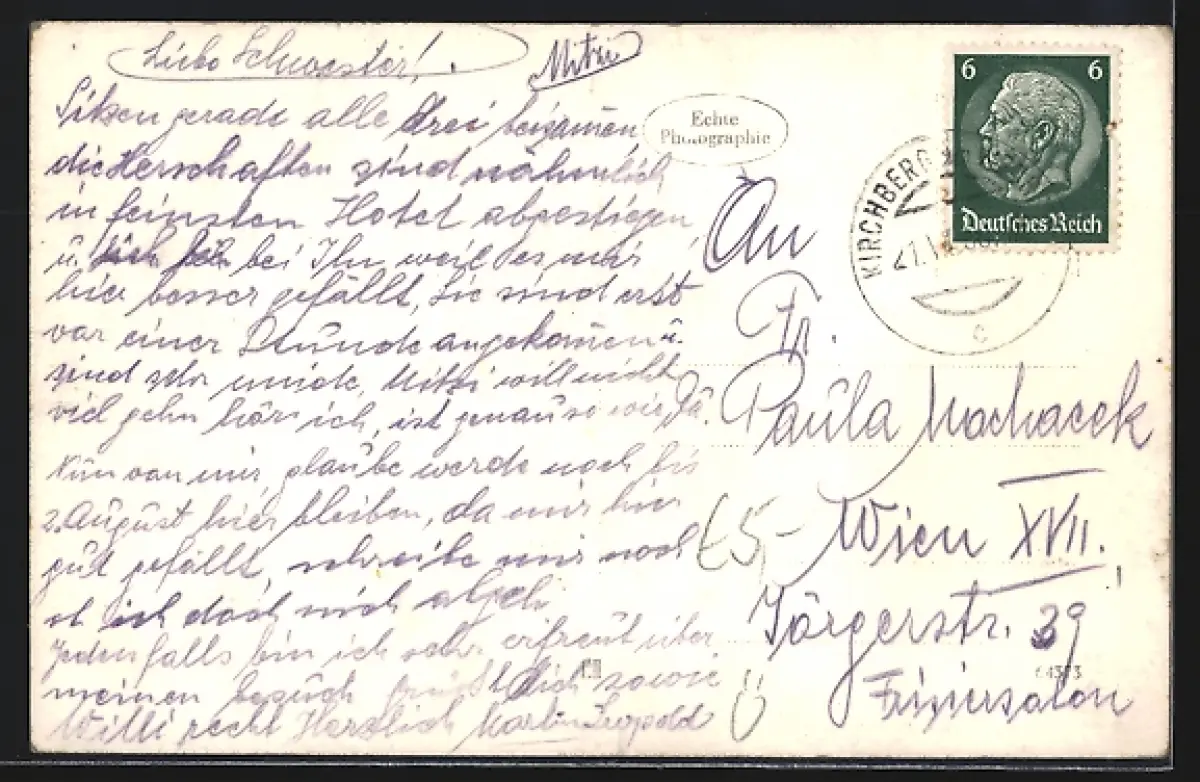 Liebe Schwester!
Mitzi
Sitzen gerade alle drei beisamen,
die Herschaften sind nähmlich
in feinsten Hotel abgestiegen
u. ich bei Ihm weil es mir
hier besser gefällt, Sie sind erst
vor einer Stunde angekomen u.
sind sehr müde, Mitzi will nicht
viel gehn hör ich, ist genauso wie
Nun von mir, glaube werde noch bis
2. August hier bleiben, da mir hier
gut gefällt, schreibe mir noch
ob ich doch
Jedenfalls bin ich sehr erfreut über
meinen besuch dich sowie
Willi recht Herzlich Leopold
Echte
Photographie
6 6
Deutsches Reich
KIRCHBERG
c
An
Fr.
Paula Machacek
Wien XVII.
Jörgerstr. 39
Frisiersalon
€5,-